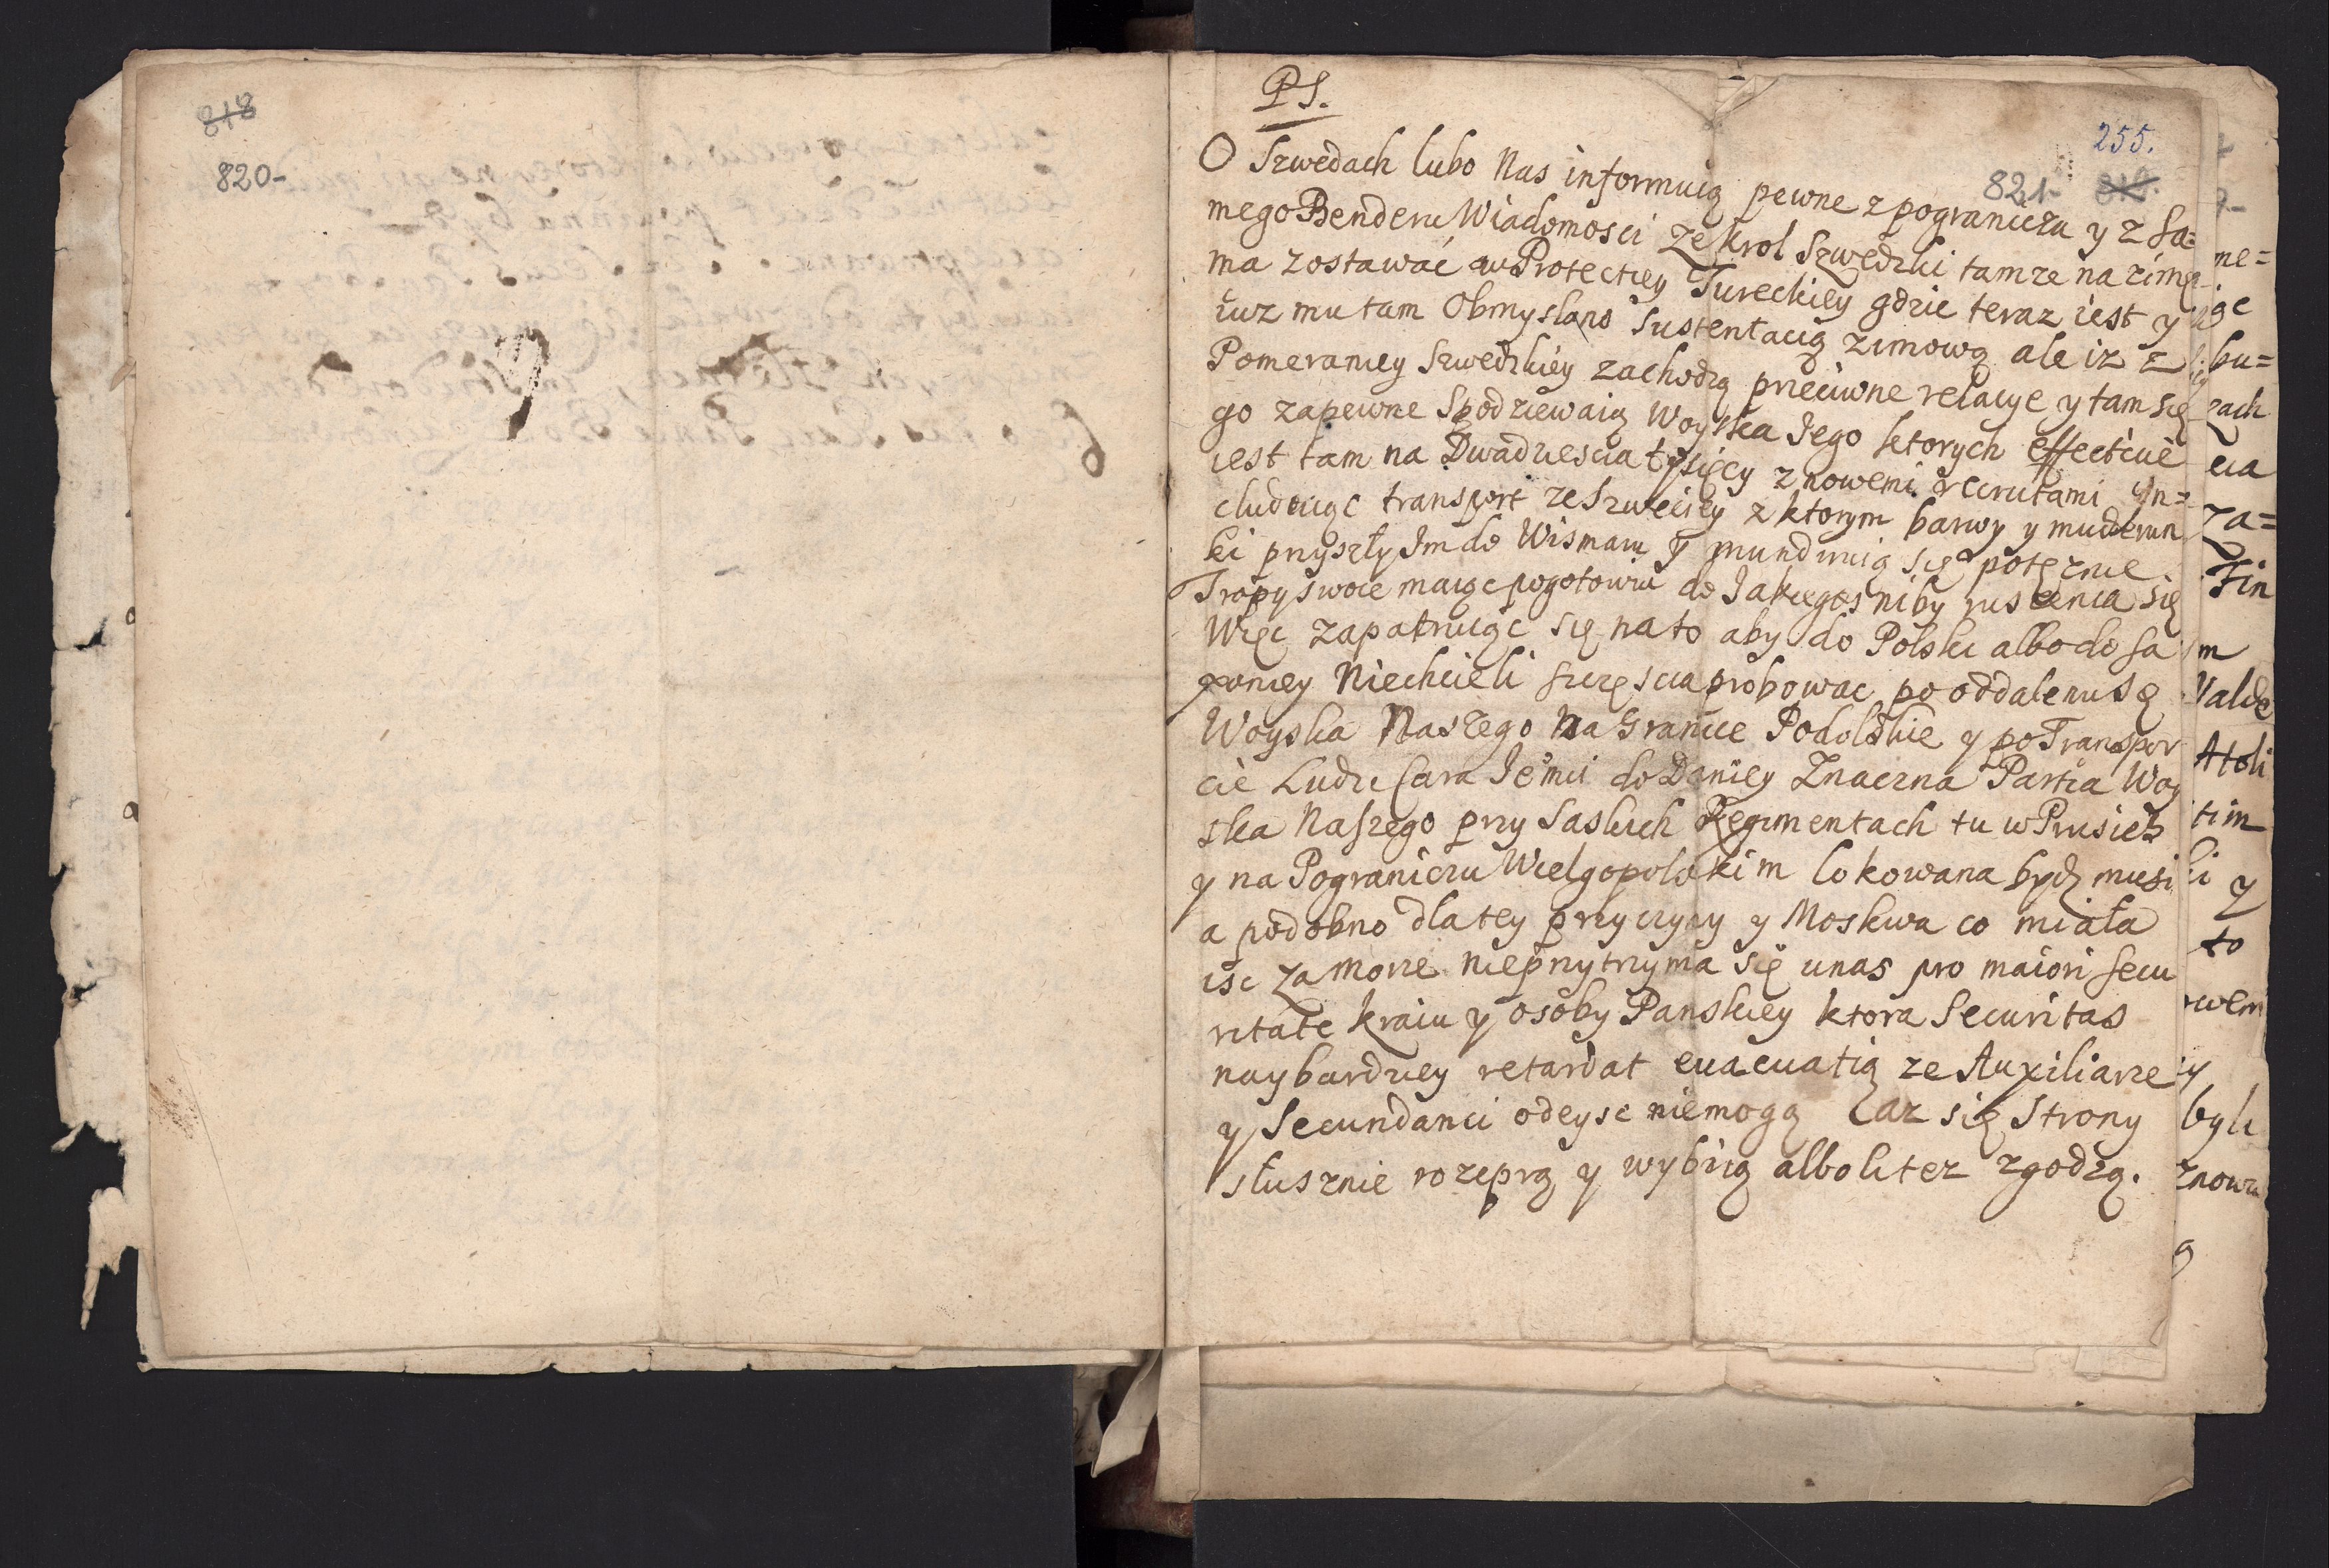 818
820-
PS.
255.
821 819.
O Szwedach lubo Nas informuią pewne z pogranicza y z Sa=
mego Benderu Wiadomosci ze Krol Szwedzki tamze na zimę
ma zostawać w Protectiey Tureckiey gdzie teraz iest y
iuz mu tam Obmyslano Sustentacią zimową ale iz z
Pomeraniey Szwedzkiey zachodzą przeciwne relacye y tam się
go zapewne Spodziewaią Woyska Jego ktorych effective
iest tam na Dwadziescia tysięcy z nowemi recrutami in=
cluduiąc transport ze Szweciey z ktorym barwy y muderun
ki przyszły Im do Wismaru y munduruią się potęznie
Tropy swoie maiąc pogotowiu do Jakiegos niby ruszenia się
Więc zapatruiąc się na to aby do Polski albo do Sa
xoniey Niechcieli szczęscia probowac po oddaleniu Się
Woyska Naszego Na Granice Podolskie y po Transpor
cie Ludzi Cara Je°mci do Daniey Znaczna Partia Woy
ska Naszego przy Saskich Regimentach tu w Prusiech
y na Pograniczu Wielgopolskim lokowana bydz musi
a podobno dla tey przyczyny y Moskwa co miała
isc za morze nieprzytrzyma się unas pro maiori secu
ritate kraiu y osoby Panskiey ktora Securitas
naybardziey retardat evacuatią ze Auxiliarze
y Secundanci odeysc niemogą az się Strony
słusznie rozeprą y wybiią albo li tez zgodzą.
me=
bu=
zach
cia
za=
Fin
m
Valde
Atoli
tim
y
to
wem
byli
znowu